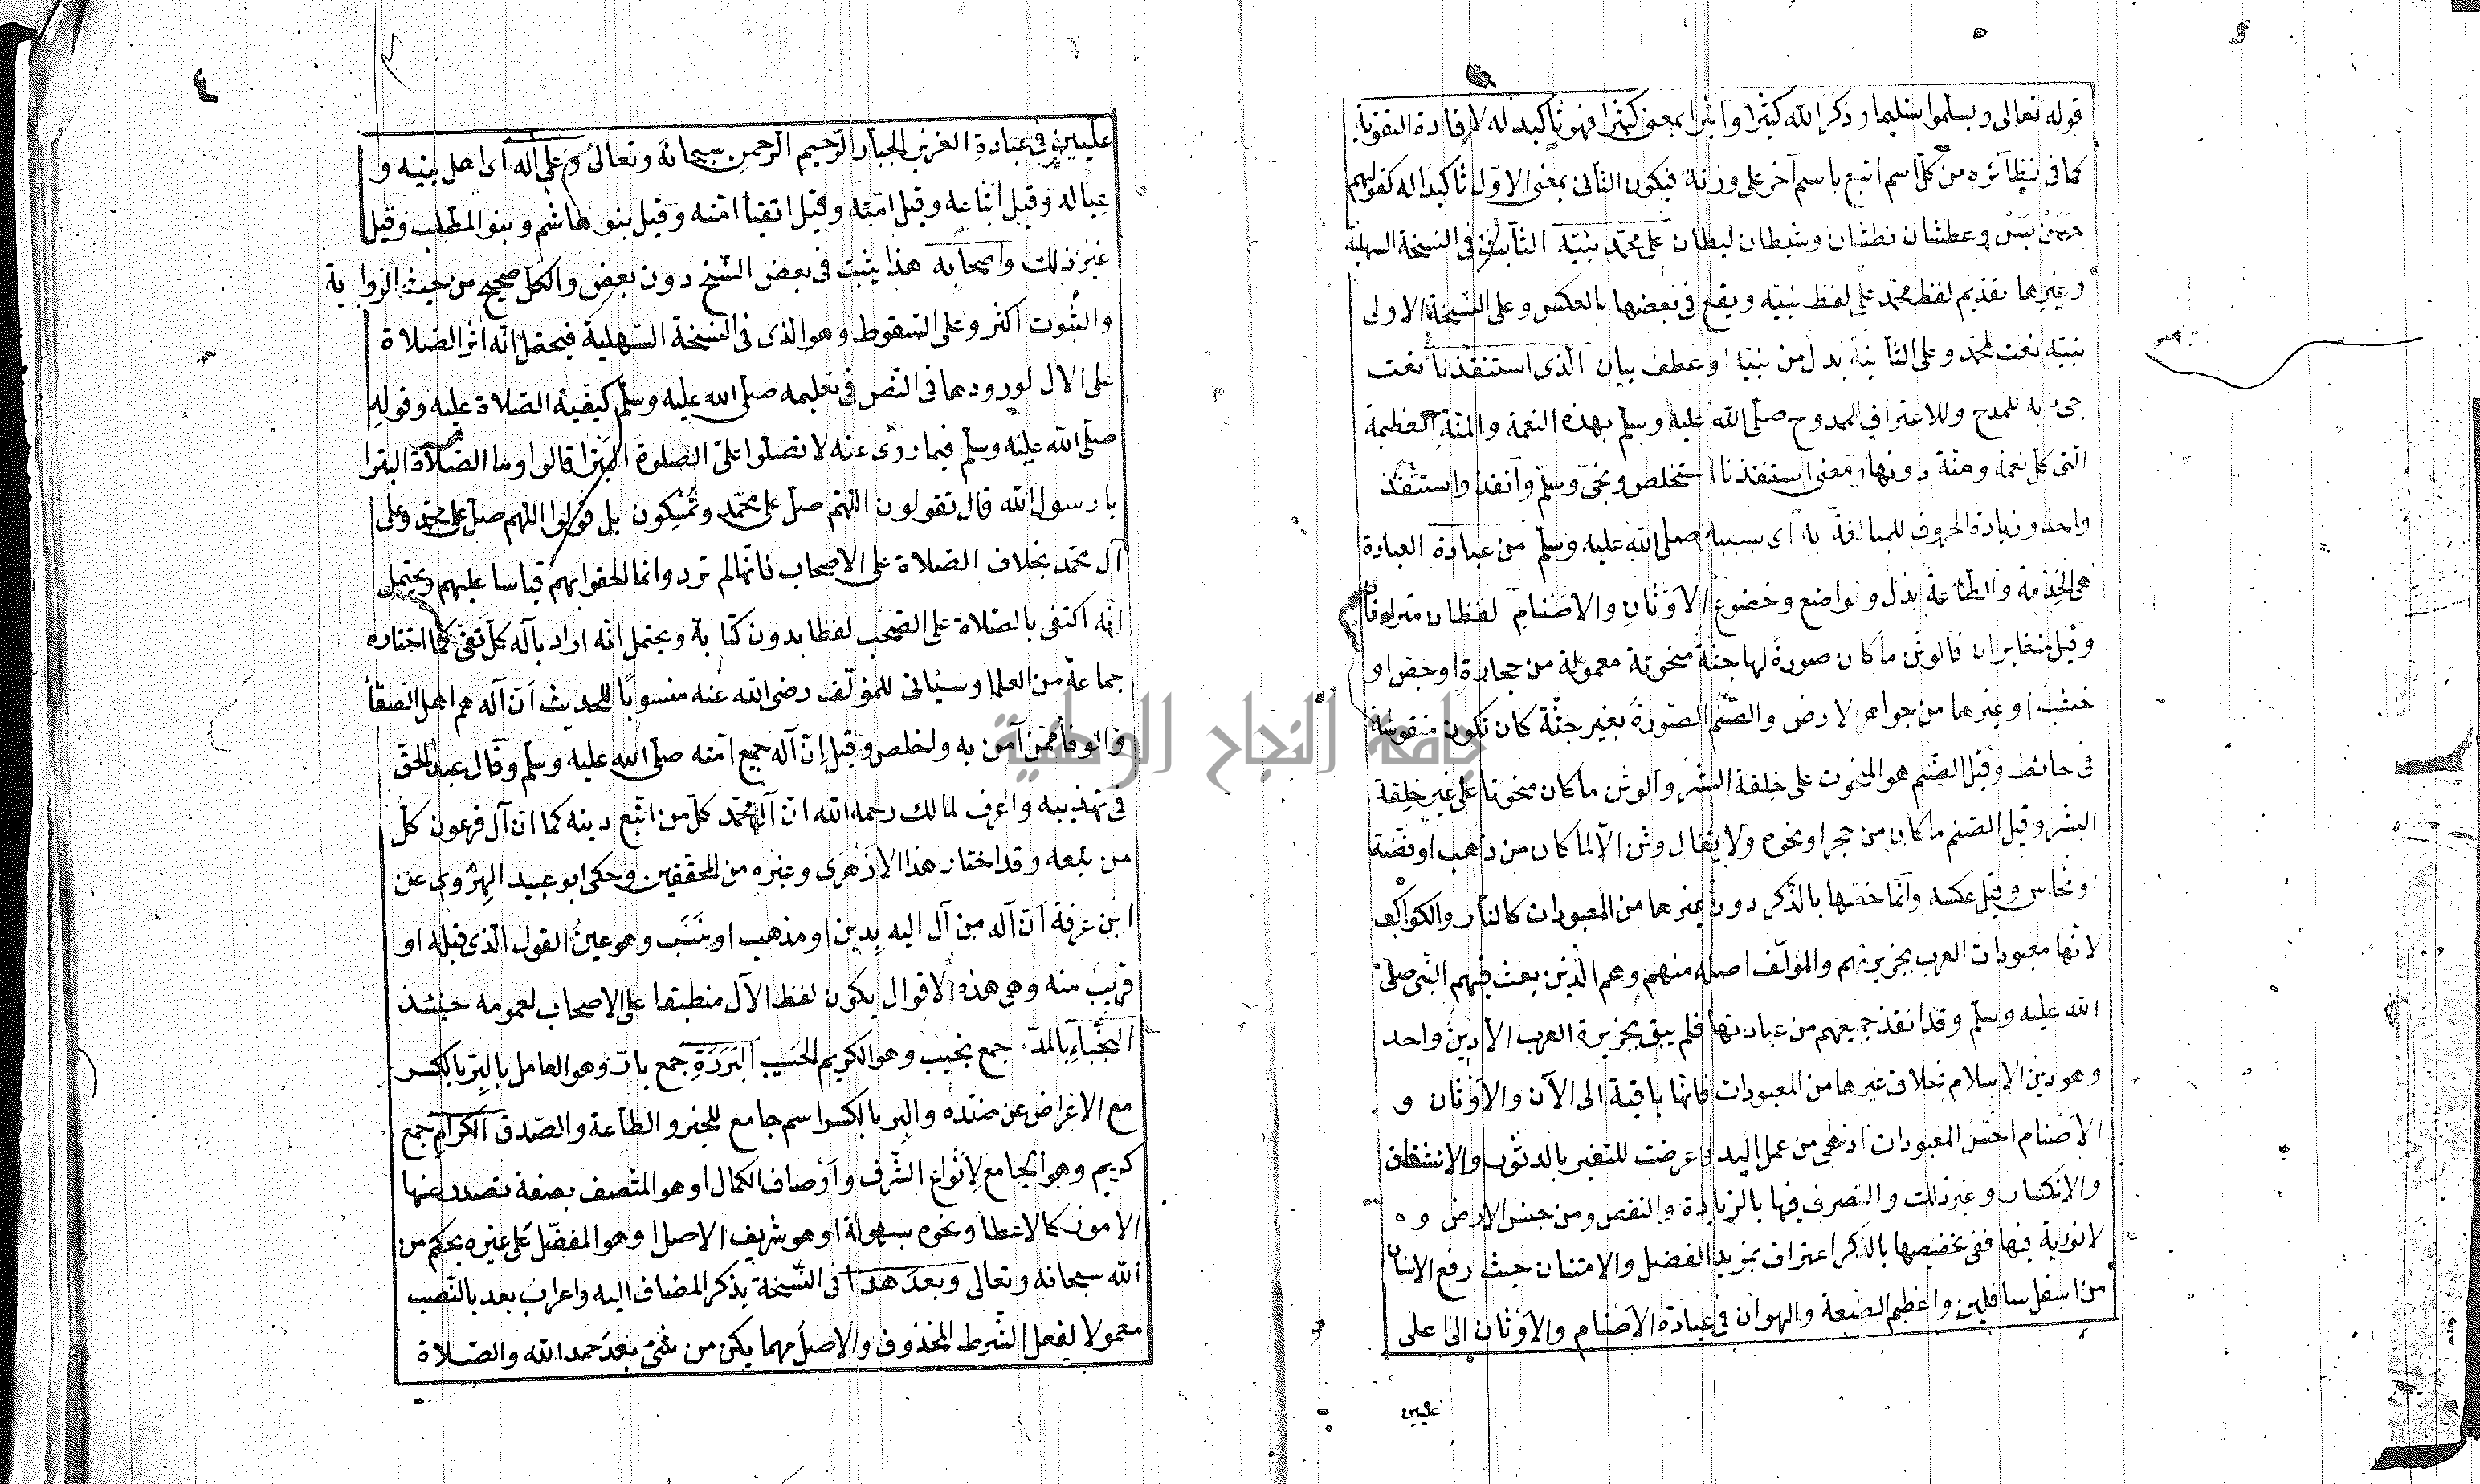 قوله تعالى ويسلموا تسليما وذكر الله كثيرا واثيرا بمعنى كثيرا فهو تأكيد له لافادة التقوية
كما فى نظائره من كل اسم اتبع باسم آخر على وزنة فيكون الثانى بمعنى الاول تأكيدا له كقولهم
حسن بسن وعطشان نطشان وشيطان ليطان على محمد نبيه الثابت فى النسخة السهلية
وغيرها تقديم لفظ محمد على لفظ نبيه ويقع فى بعضها بالعكس وعلى النسخة الاولى
نبيه نعت لمحمد وعلى الثانية بدل من نبيه او عطف بيان الذى استنقذنا نعت
جىء به للمدح وللاعتراف للممدوح صلى الله عليه وسلم بهذه النعمة والمنة العظيمة
التى كل نعمة ومنة دونها ومعنى استنقذنا استخلص ونجى وسلم وانقذ واستنقذ
واحد وزيادة الحروف للمبالغة به اى بسببه صلى الله عليه وسلم من عبادة العبادة
هى الخدمة والطاعة بذل وتواضع وخضوع الاوثان والاصنام لفظان مترادفان
وقيل متغايران فالوثن ما كان صورة لها جثة منحوتة معمولة من حجارة او جص او
خشب او غيرها من جواهر الارض والصنم الصورة بغير جثة كان تكون منقوشة
فى حائط وقيل الصنم هو المنحوت على خلقة البشر والوثن ما كان منحوتا على غير خلقة
البشر وقيل الصنم ما كان من حجر او نحوه ولا يقال وثن الا لما كان من ذهب او فضة
او نحاس وقيل عكسه وانما خصها بالذكر دون غيرها من المعبودات كالنار والكواكب
لانها معبودات العرب بجزيرتهم والمؤلف اصله منهم وهم الذين بعث فيهم النبى صلى
الله عليه وسلم وقد انقذ جميعهم من عبادتها فلم يبق بجزيرة العرب الا دين واحد
وهو دين الاسلام بخلاف غيرها من المعبودات فانها باقية الى الآن والاوثان و
الاصنام اخس المعبودات اذ هى من عمل اليد وعرضت للتغير بالدثور والانتقال
والانكسار وغير ذلك والتصرف فيها بالزيادة والنقص ومن جنس الارض و
لا نورية فيها ففى تخصيصها بالذكر اعتراف بمزيد الفضل والامتنان حيث رفع الانسان
من اسفل سافلين واعظم الضيعة والهوان فى عبادة الاصنام والاوثان الى اعلى
عليين
عليين فى عبادة العزيز الجبار الرحيم الرحمن سبحانه وتعالى وعلى اله اى اهل بيته و
عياله وقيل اتباعه وقيل امته وقيل اتقيا امته وقيل بنو هاشم وبنو المطلب وقيل
غير ذلك واصحابه هذا يثبت فى بعض النسخ دون بعض والكل صحيح من حيث الرواية
والثبوت اكثر وعلى السقوط وهو الذى فى النسخة السهلية فيحتمل انه اثر الصلاة
على الال لورودها فى النص فى تعليمه صلى الله عليه وسلم كيفية الصلاة عليه وقوله
صلى الله عليه وسلم فيما روى عنه لا تصلوا على الصلوة البترا قالوا وما الصلاة البترا
يا رسول الله قال تقولون اللهم صل على محمد وتمسكون بل قولوا اللهم صل على محمد وعلى
آل محمد بخلاف الصلاة على الاصحاب فانها لم ترد وانما الحقوا بهم قياسا عليهم ويحتمل
انه اكتفى بالصلاة على الصحب لفظا بدون كتابة ويحتمل انه اراد بآله كل تقى كما اختاره
جماعة من العلما وسياتى للمؤلف رضى الله عنه منسوبا للحديث ان آله هم اهل الصفا
والوفا ممن آمن به واخلص وقيل ان آله جميع امته صلى الله عليه وسلم وقال عبد الحق
فى تهذيبه واعرف لمالك رحمه الله ان آل محمد كل من اتبع دينه كما ان آل فرعون كل
من تبعه وقد اختار هذا الازهرى وغيره من المحققين وحكى ابو عبيد الهروى عن
ابن عرفة ان آله من آل اليه بدين او مذهب او نسب وهو عين القول الذى قبله او
قريب منه وهى هذه الاقوال يكون لفظ الآل منطبقا على الاصحاب لعمومه حينئذ
النجباء بالمد جمع نجيب وهو الكريم الحسيب البررة جمع بار وهو العامل بالبر بالكسر
مع الاعراض عن ضده والبر بالكسر اسم جامع للخير والطاعة والصدق الكرام جمع
كريم وهو الجامع لانواع الشرف واوصاف الكمال او هو المتصف بصفة تصدر عنها
الامور كالاعطا ونحوه بسهولة او هو شريف الاصل او هو المفضل على غيره بحكم من
الله سبحانه وتعالى وبعد هذا فى النسخة بذكر المضاف اليه واعراب بعد بالنصب
معمولا لفعل الشرط المحذوف والاصل مهما يكن من شىء بعد حمد الله والصلاة
جامعة النجاح الوطنية